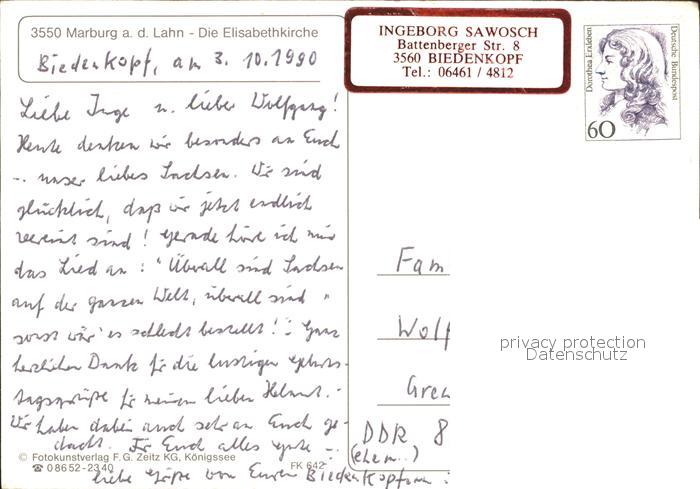 3550 Marburg a. d. Lahn - Die Elisabethkirche
Biedenkopf, am 3. 10. 1990
INGEBORG SAWOSCH
Battenberger Str. 8
3560 BIEDENKOPF
Tel.: 06461 / 4812
Dorothea Erxleben
Deutsche Bundespost
60
Liebe Inge u. lieber Wolfgang!
Heute denken wir besonders an Euch
-. unser liebes Sachsen. Wir sind
glücklich, daß wir jetzt endlich
vereint sind! Gerade höre ich mir
das Lied an: "Überall sind Sachsen
auf der ganzen Welt, überall sind "
sonst wär' es schlecht bestellt! :- Ganz
herzlichen Dank für die lustigen Geburts-
tagsgrüße für meinen lieben Helmut. -
Wir haben dabei auch sehr an Euch ge-
dacht. Für Euch alles gute -:
liebe Grüße von Euren Biedenkopfern :
Fam
Wolf
Gren
DDR 8
(ehem..)
privacy protection
Datenschutz
© Fotokunstverlag F. G. Zeitz KG, Königssee
☎ 0 86 52 - 23 40
FK 642